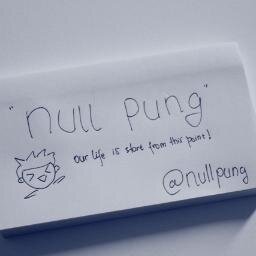 "null pung"
our life is start from this point!
@nullpung